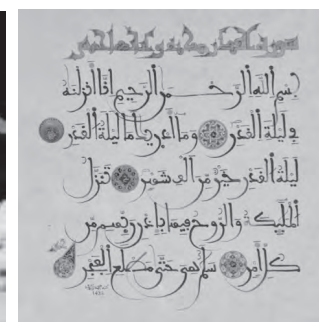 بسم الله الرحمن الرحيم إنا أنزلنه
في ليلة القدر وما أدريك ما ليلة القدر
ليلة القدر خير من ألف شهر تنزل
الملئكة والروح فيها بإذن ربهم من
كل أمر سلم هي حتى مطلع الفجر